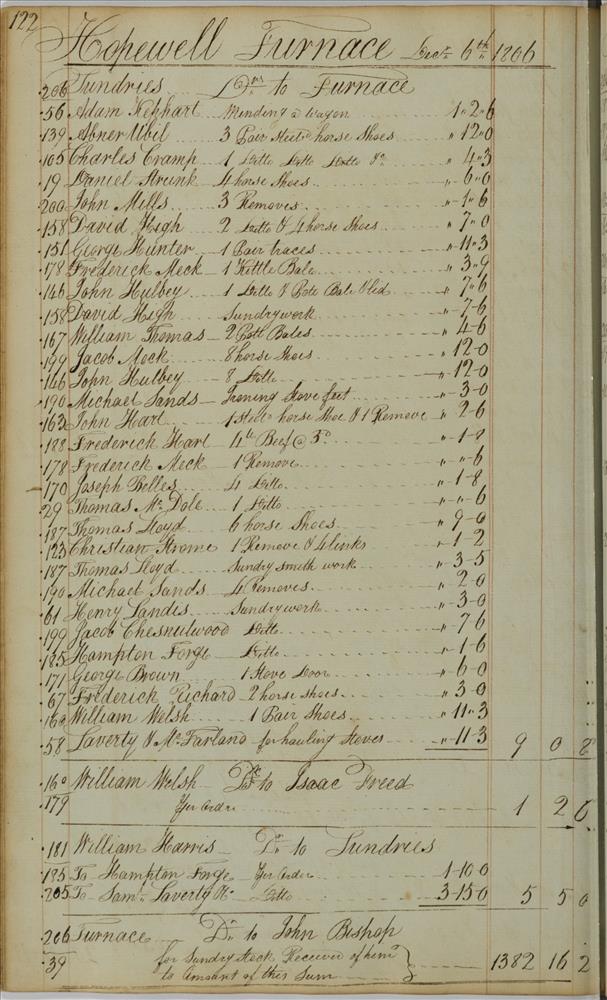 122
Hopewell Furnace Decr. 6th 1806
206 Tundries Drs to Furnace
56 Adam Hephart Minding a Wagon 1 " 2 " 6
139 Abner Ubil 3 Pair Steeld horse Shoes " 12 " 0
105 Charles Cramp 1 Ditto Ditto Ditto Do " 4 " 3
19 Daniel Strunk 4 horse Shoes " 6 " 0
200 John Mills 3 Removes " 1 " 6
158 David High 2 Ditto & 4 horse Shoes " 7 " 0
151 George Hunter 1 Pair traces " 11 " 3
178 Frederick Meck 1 Kettle Bale " 3 " 9
146 John Hulbey 1 Ditto & Pott Bale & led " 7 " 6
158 David High Sundry work " 7 - 6
167 William Thomas 2 Pott Bales " 4 - 6
199 Jacob Mock 8 horse Shoes " 12 - 0
146 John Hulbey 8 Ditto " 12 - 0
190 Michael Sands Ironing Stove feet " 3 - 0
163 John Hart 1 Steeld horse Shoe & 1 Remove " 2 - 6
188 Frederick Hart 4 lb Beef @ 5d " 1 - 8
178 Frederick Meck 1 Remove " " - 6
170 Joseph Belles 4 Ditto " 1 - 8
29 Thomas Mc. Dole 1 Ditto " " - 6
187 Thomas Lloyd 6 horse Shoes " 9 - 0
123 Christian Strome 1 Remove & 4 links " 1 - 2
187 Thomas Lloyd Sundry smith work " 3 - 5
190 Michael Sands 4 Removes " 2 - 0
61 Henry Landis Sundry work " 3 - 0
199 Jacob Chesnutwood Ditto " 7 6
185 Hampton Forge Ditto " 1 - 6
171 George Brown 1 Stove Door " 6 - 0
67 Frederick Richard 2 horse shoes " 3 - 0
160 William Welsh 1 Pair Shoes " 11 " 3
58 Laverty & Mc. Farland for hauling Stoves " 11 - 3 9 0 8
160 William Welsh Dr. to Isaac Freed
179 Per Order 1 2 6
181 William Harris Dr. to Sundries
185 To Hampton Forge Per Order 1 - 10 0
205 To Saml. Laverty Ditto 3 - 15 0 5 5 0
206 Furnace Dr. to John Bishop
39 for Sundry Stock Received of him
to Amount of this Sum 1382 16 2